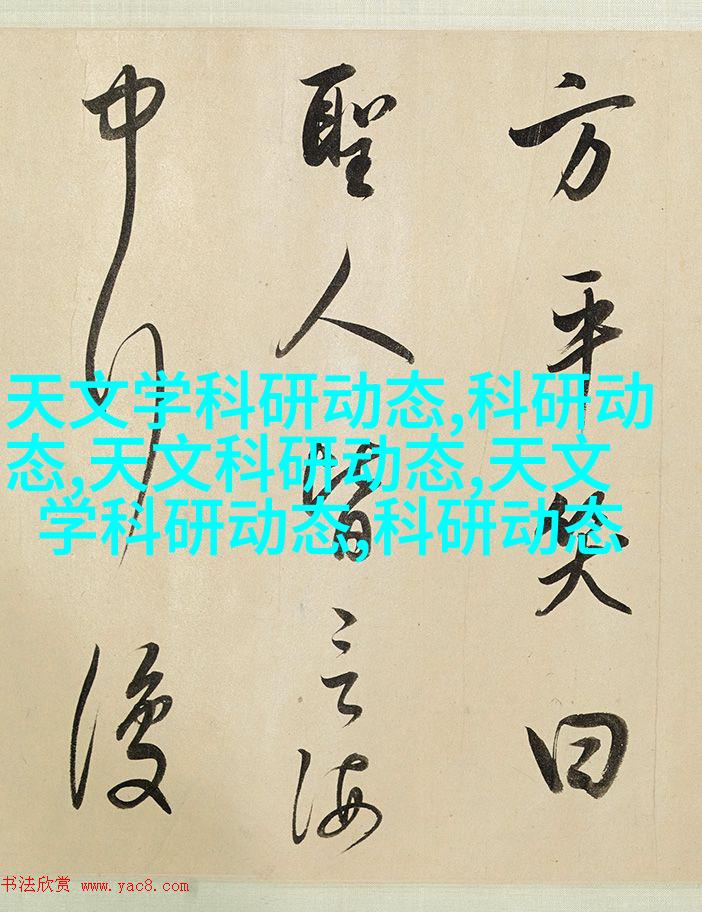 方平笑曰
聖人皆言海
中行復
天文学科研动态,科研动
态,天文科研动态,天文
学科研动态,科研动态
书法欣赏 www.yac8.com